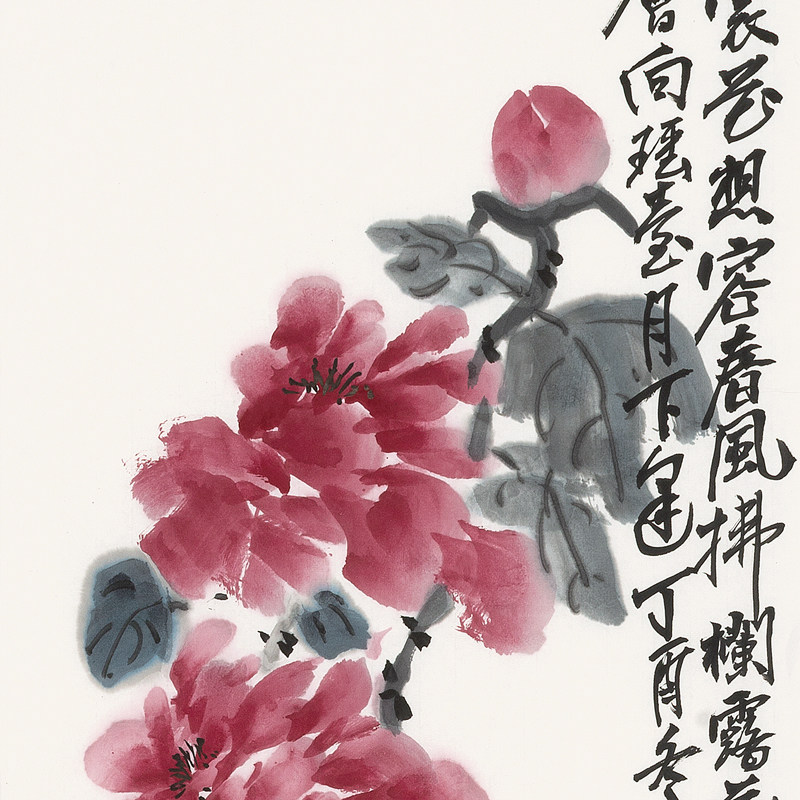 裳花想容春風拂欄露
會向瑤臺月下逢丁酉冬